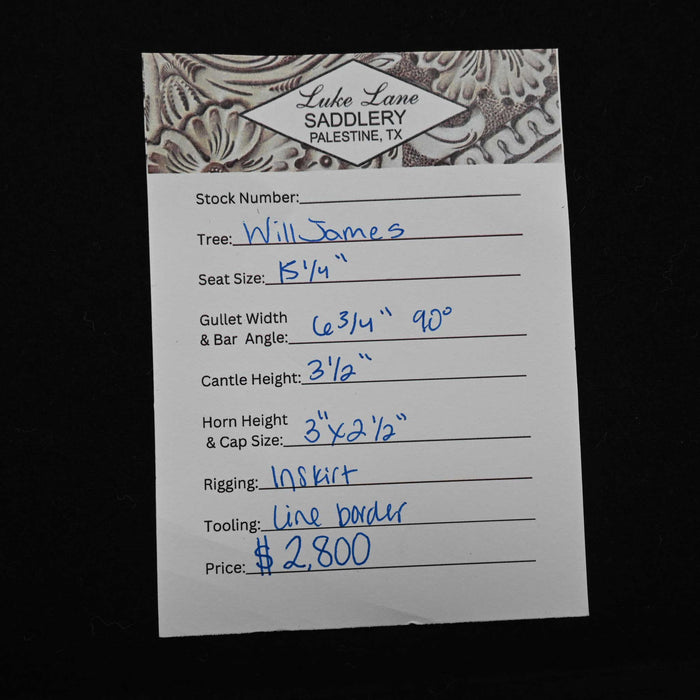 Luke Lane
SADDLERY
PALESTINE, TX
Stock Number:
Tree: Will James
Seat Size: 15 1/4"
Gullet Width
& Bar Angle: 6 3/4" 90°
Cantle Height: 3 1/2"
Horn Height
& Cap Size: 3" x 2 1/2"
Rigging: Inskirt
Tooling: Line border
Price: $ 2,800